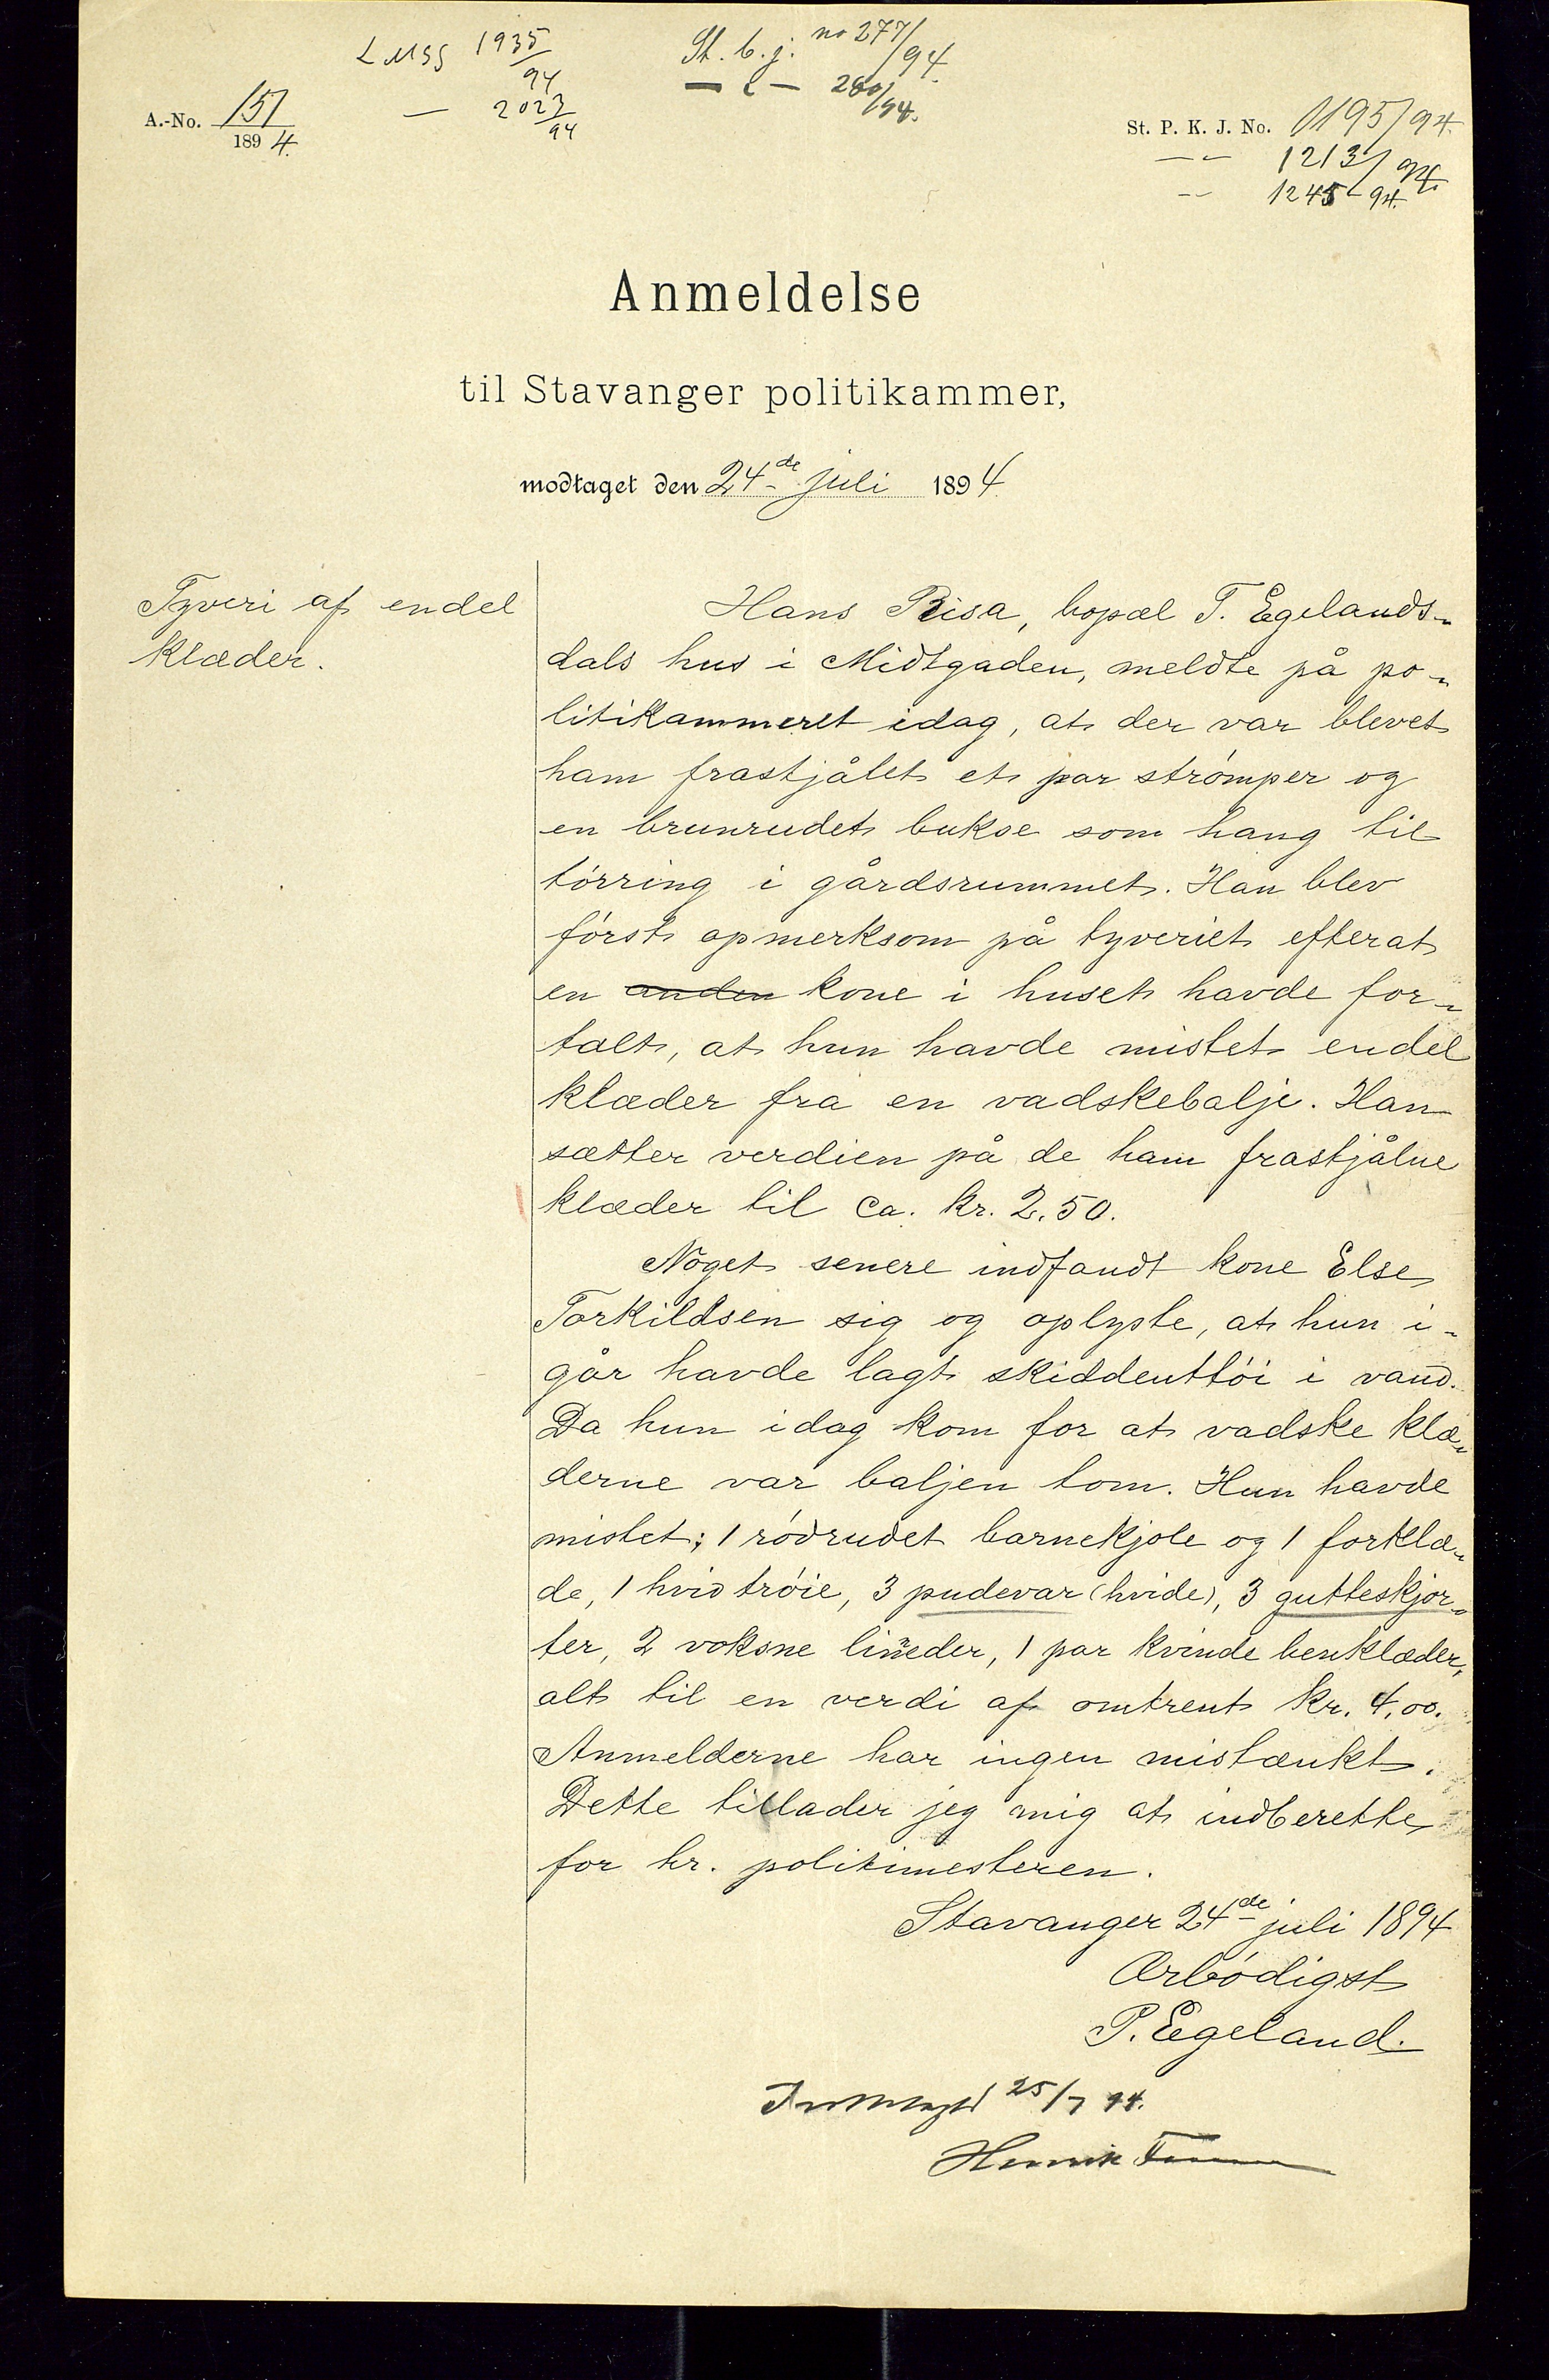 L MSS 1935/94
— 2023/94
St. b. j. no 277/94.
— " — 280/94.
A.-No. 151
1894.
St. P. K. J. No. 1195/94.
— " 1213/94.
— " 1245-94.
Anmeldelse
til Stavanger politikammer,
modtaget den 24de juli 1894.
Tyveri af endel
klæder.
Hans Risa, bopæl T. Egelands-
dals hus i Midtgaden, meldte på po-
litikammeret idag, at der var blevet
ham frastjålet et par strømper og
en brunrudet bukse som hang til
tørring i gårdsrummet. Han blev
først opmerksom på tyveriet efterat
en anden kone i huset havde for-
talt, at hun havde mistet endel
klæder fra en vadskebalje. Han
sætter verdien på de ham frastjålne
klæder til ca. kr. 2.50.
Noget senere indfandt kone Else
Torkildsen sig og oplyste, at hun i-
går havde lagt skiddenttøi i vand.
Da hun idag kom for at vadske klæ-
derne var baljen tom. Hun havde
mistet: 1 rødrudet barnekjole og 1 forklæ-
de, 1 hvid trøie, 3 pudevar (hvide), 3 gutteskjor-
ter, 2 voksne linneder, 1 par kvinde benklæder,
alt til en verdi af omtrent kr. 4,00.
Anmelderne har ingen mistænkt.
Dette tillader jeg mig at indberette
for hr. politimesteren.
Stavanger 24de juli 1894
Ærbødigst
P. Egeland.
25/7 94.
Henrik